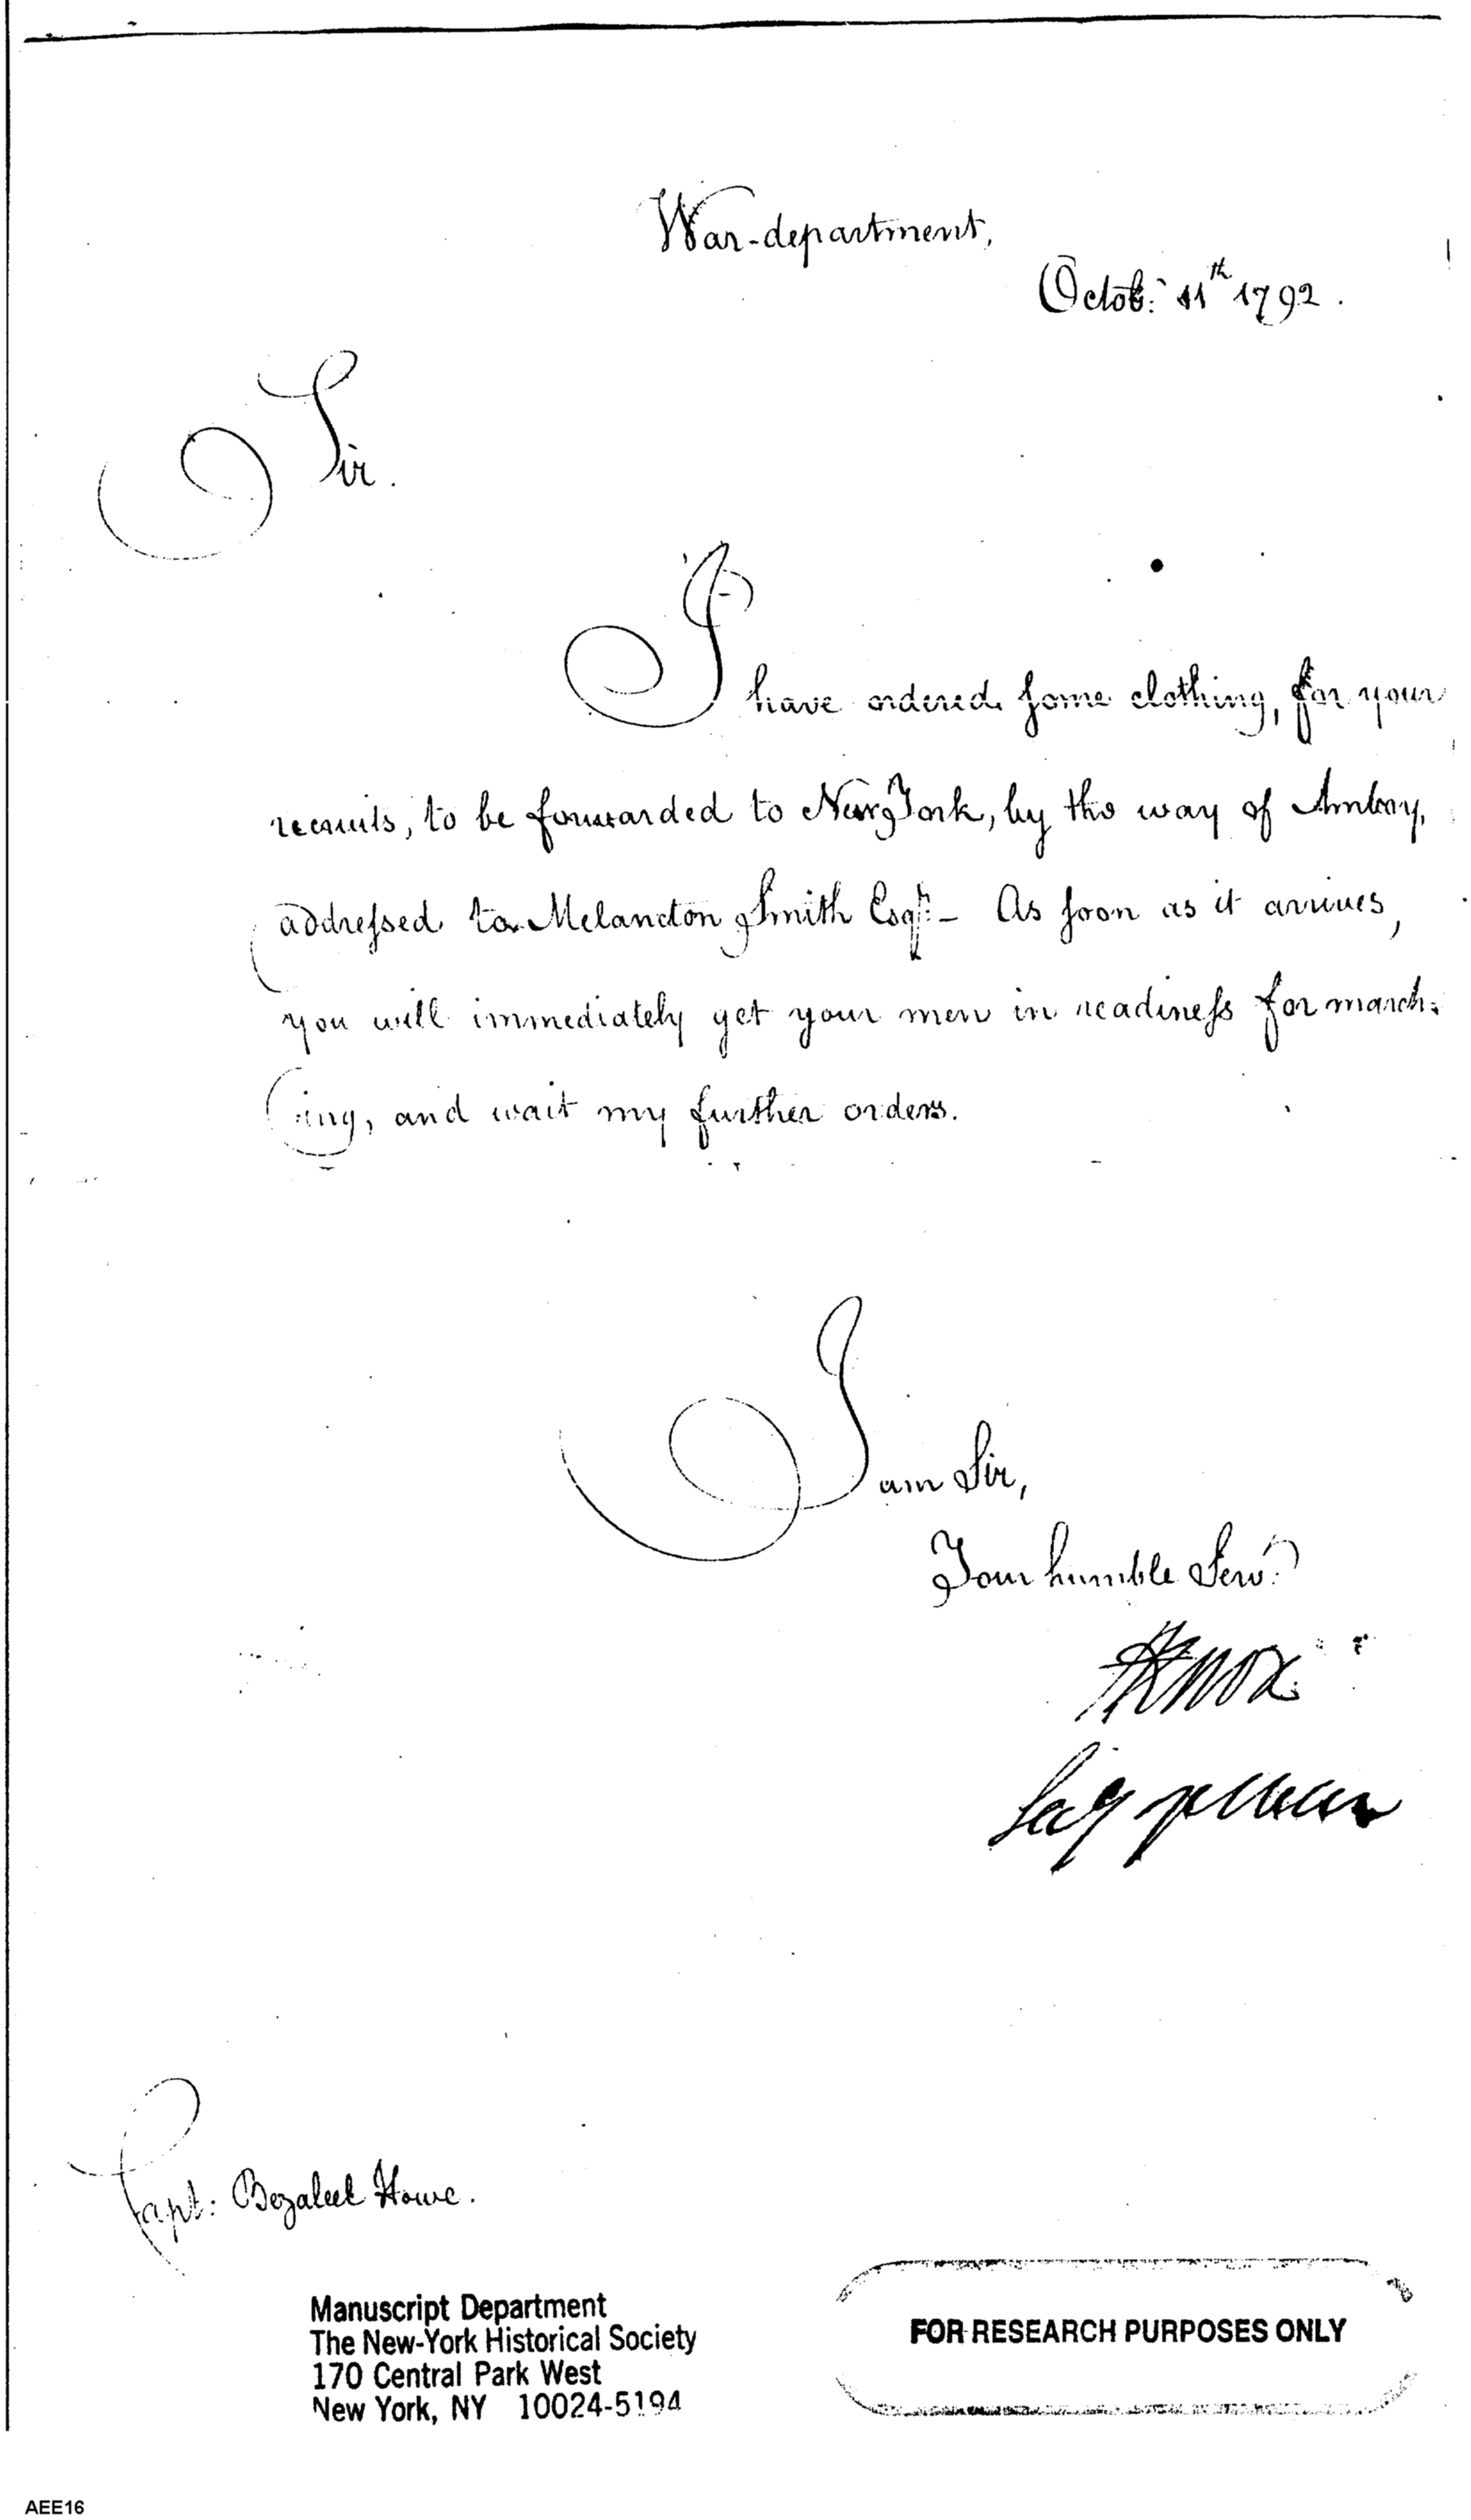 War-department,
Octob: 11th 1792.
Sir.
I have ordered some clothing, for your
recruits, to be forwarded to New York, by the way of Amboy,
addressed to Melancton Smith Esqr:- As soon as it arrives,
you will immediately get your men in readiness for march:
:ing, and wait my further orders.
I am Sir,
Your humble Servt
HKnox
Secy of War
Capt: Bezaleel Howe.
Manuscript Department
The New-York Historical Society
170 Central Park West
New York, NY 10024-5194
FOR RESEARCH PURPOSES ONLY
AEE16